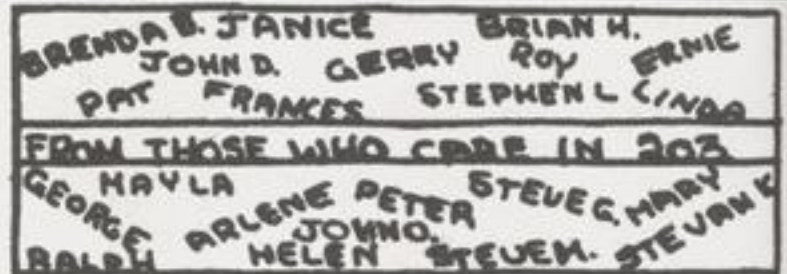 BRENDA B. JANICE BRIAN H.
JOHN D. GERRY ROY ERNIE
PAT FRANCES STEPHEN L LINDA
FROM THOSE WHO CARE IN 203
GEORGE MAYLA ARLENE PETER STEVE G. MARY
JOHN O. STEVAN K
RALPH HELEN STEVE M.